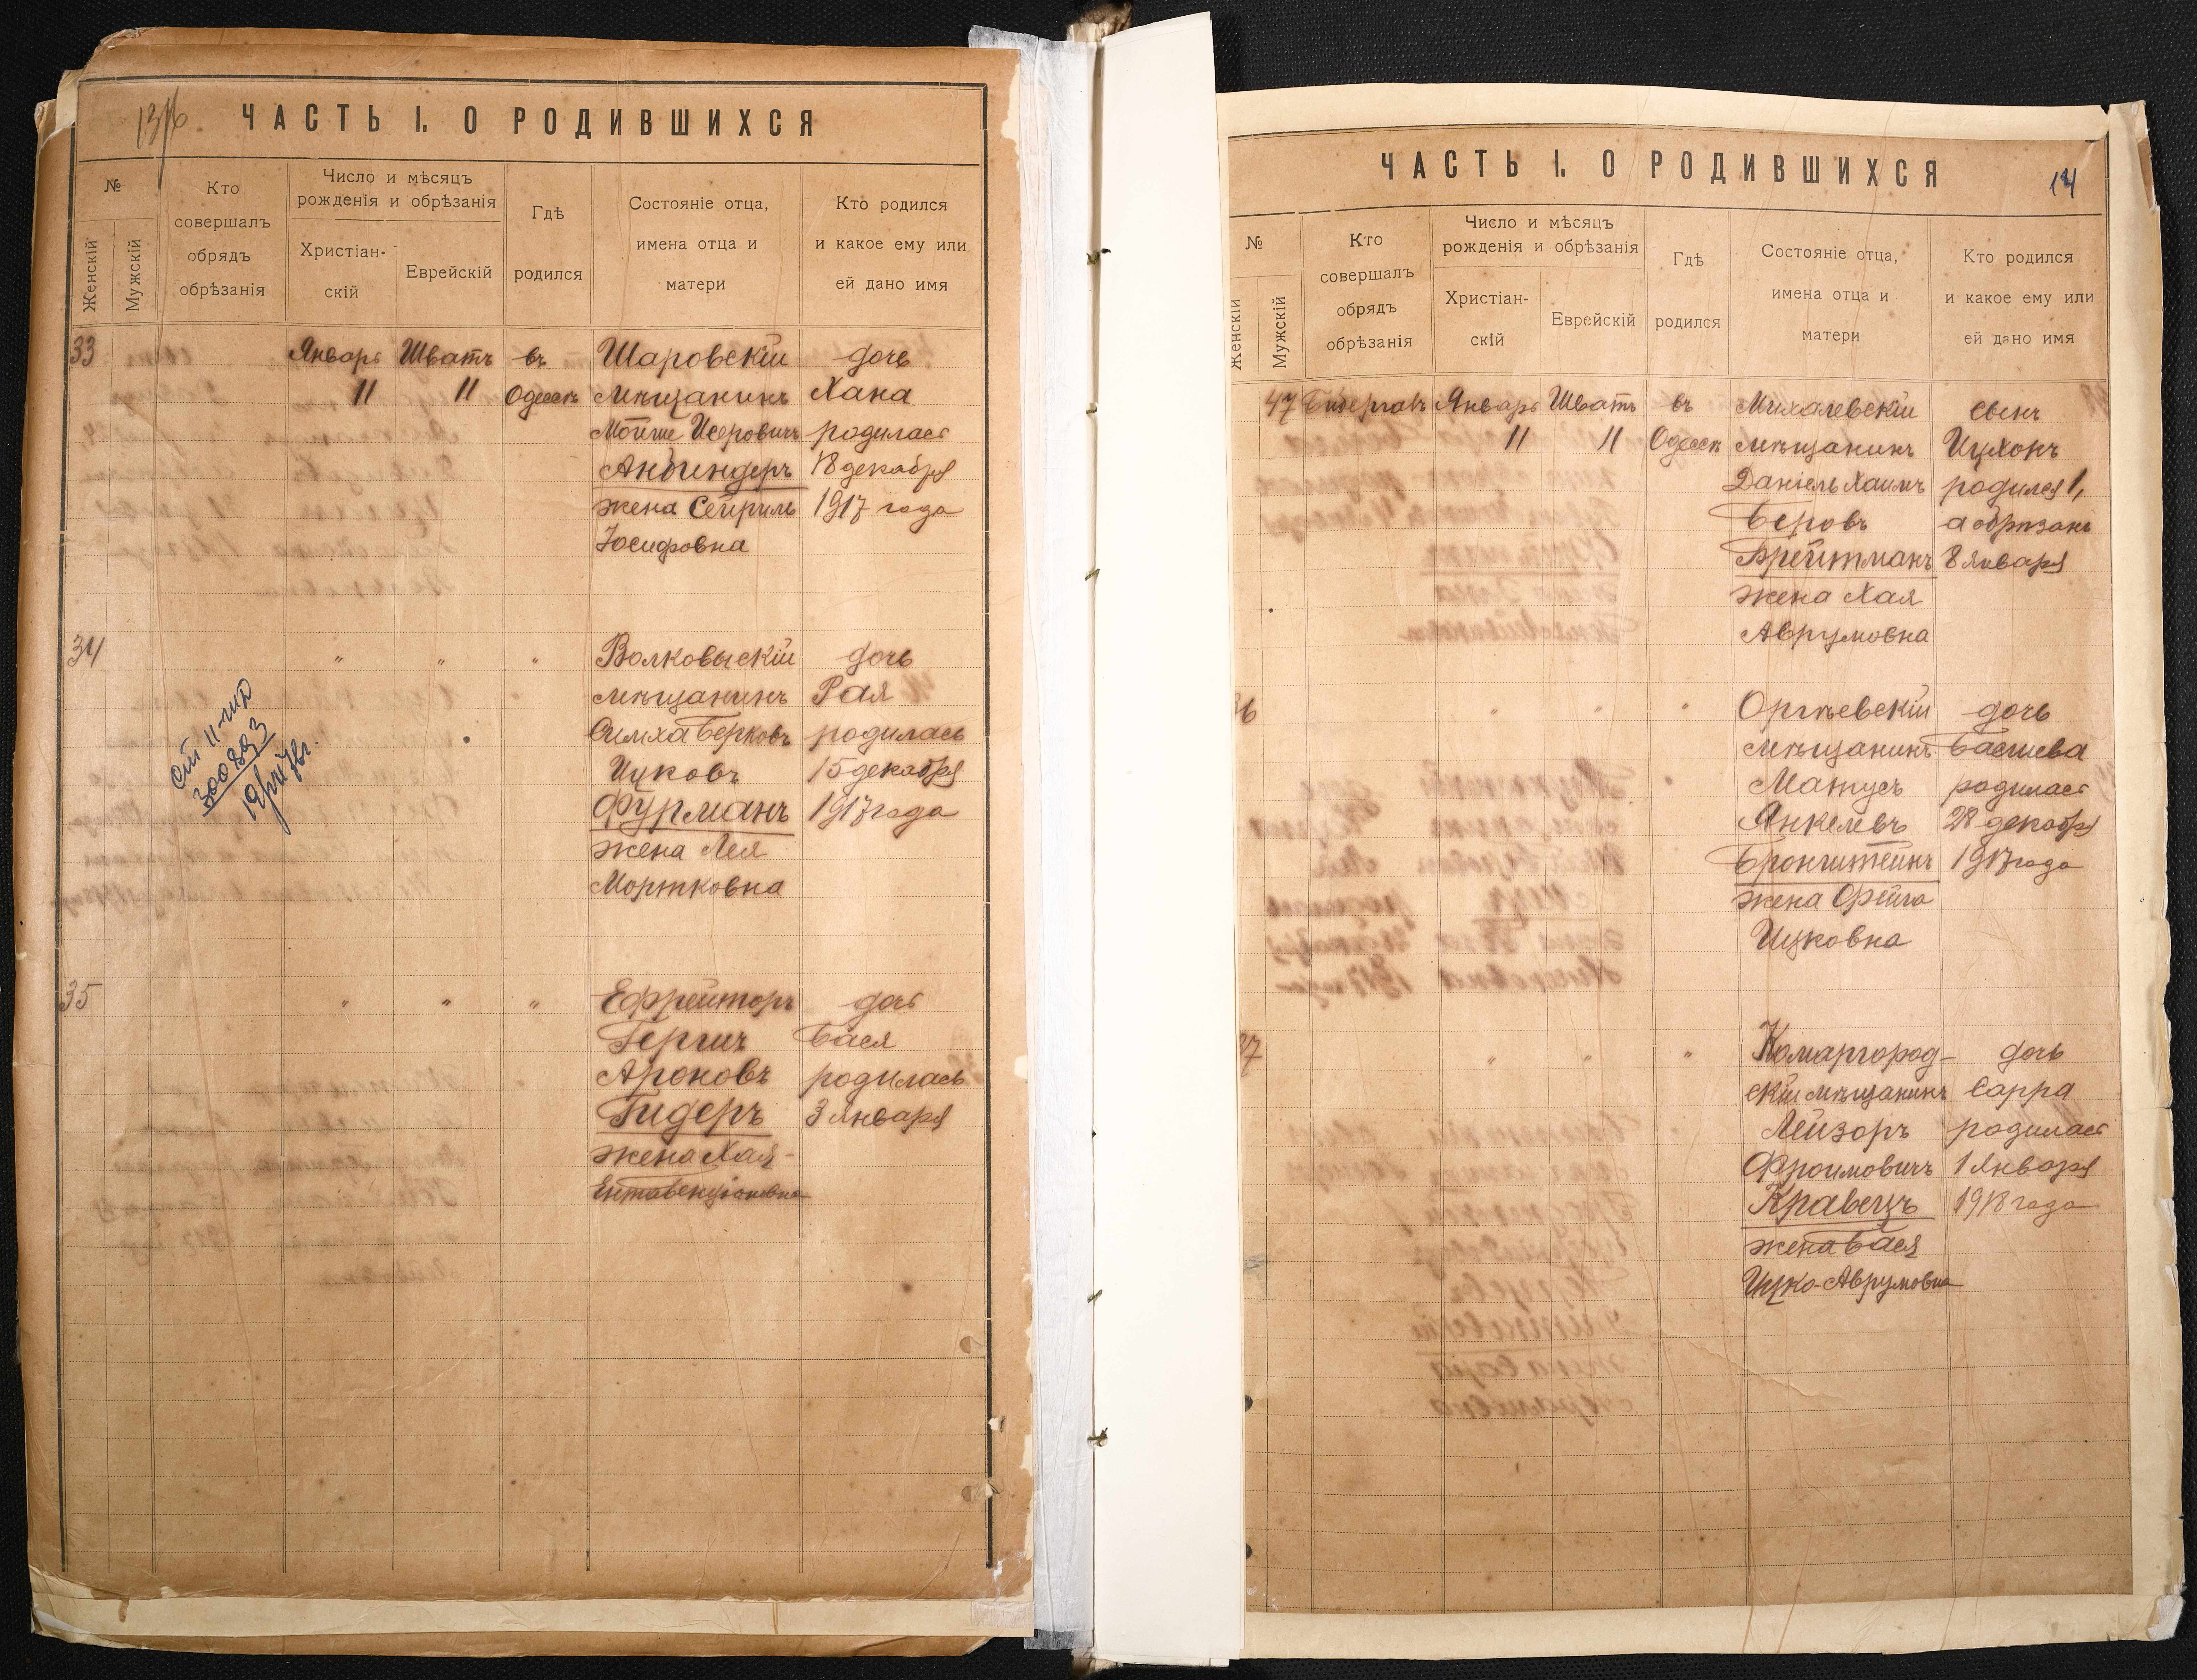 136
ЧАСТЬ I. О РОДИВШИХСЯ
№
Женскій
Мужскій
Кто
совершалъ
обрядъ
обрѣзанія
Число и мѣсяцъ
рожденія и обрѣзанія
Христіан-
скій
Еврейскій
Гдѣ
родился
Состояніе отца,
имена отца и
матери
Кто родился
и какое ему или
ей дано имя
33 Январь Шватъ въ Шаровскій дочь
11 11 Одессѣ мѣщанинъ Хана
Мойше Исеровичъ родилась
18 декабря
жена Сейриль 1917 года
Іосифовна
34 " " " Волковыскій дочь
мѣщанинъ Рая
Симха Берковъ родилась
Ицковъ 15 декабря
Фурманъ 1917 года
жена Лея
Мортковна
300893
35 " " " Ефрейторъ дочь
Гершъ Бася
Ароновъ родилась
Гидеръ 3 Января
жена Хая-
Ента Бенціоновна
ЧАСТЬ I. О РОДИВШИХСЯ
14
№
Женскій
Мужскій
Кто
совершалъ
обрядъ
обрѣзанія
Число и мѣсяцъ
рожденія и обрѣзанія
Христіан-
скій
Еврейскій
Гдѣ
родился
Состояніе отца,
имена отца и
матери
Кто родился
и какое ему или
ей дано имя
47 Январь Шватъ въ Михалевскій сынъ
11 11 Одессѣ мѣщанинъ Ицхокъ
Даніель Хаимъ родился 1,
Беровъ а обрѣзанъ
Брейтманъ 8 Января
жена Хая
Аврумовна
36 " " " Оргѣевскій дочь
мѣщанинъ Басшева
Матусъ родилась
Янкелевъ 28 декабря
Бронштейнъ 1917 года
жена Фейга
Ицковна
37 " " " Комаргород- дочь
скій мѣщанинъ Сарра
Лейзоръ родилась
Фроимовичъ 1 Января
Кравецъ 1918 года
жена Бася
Ицко-Аврумовна